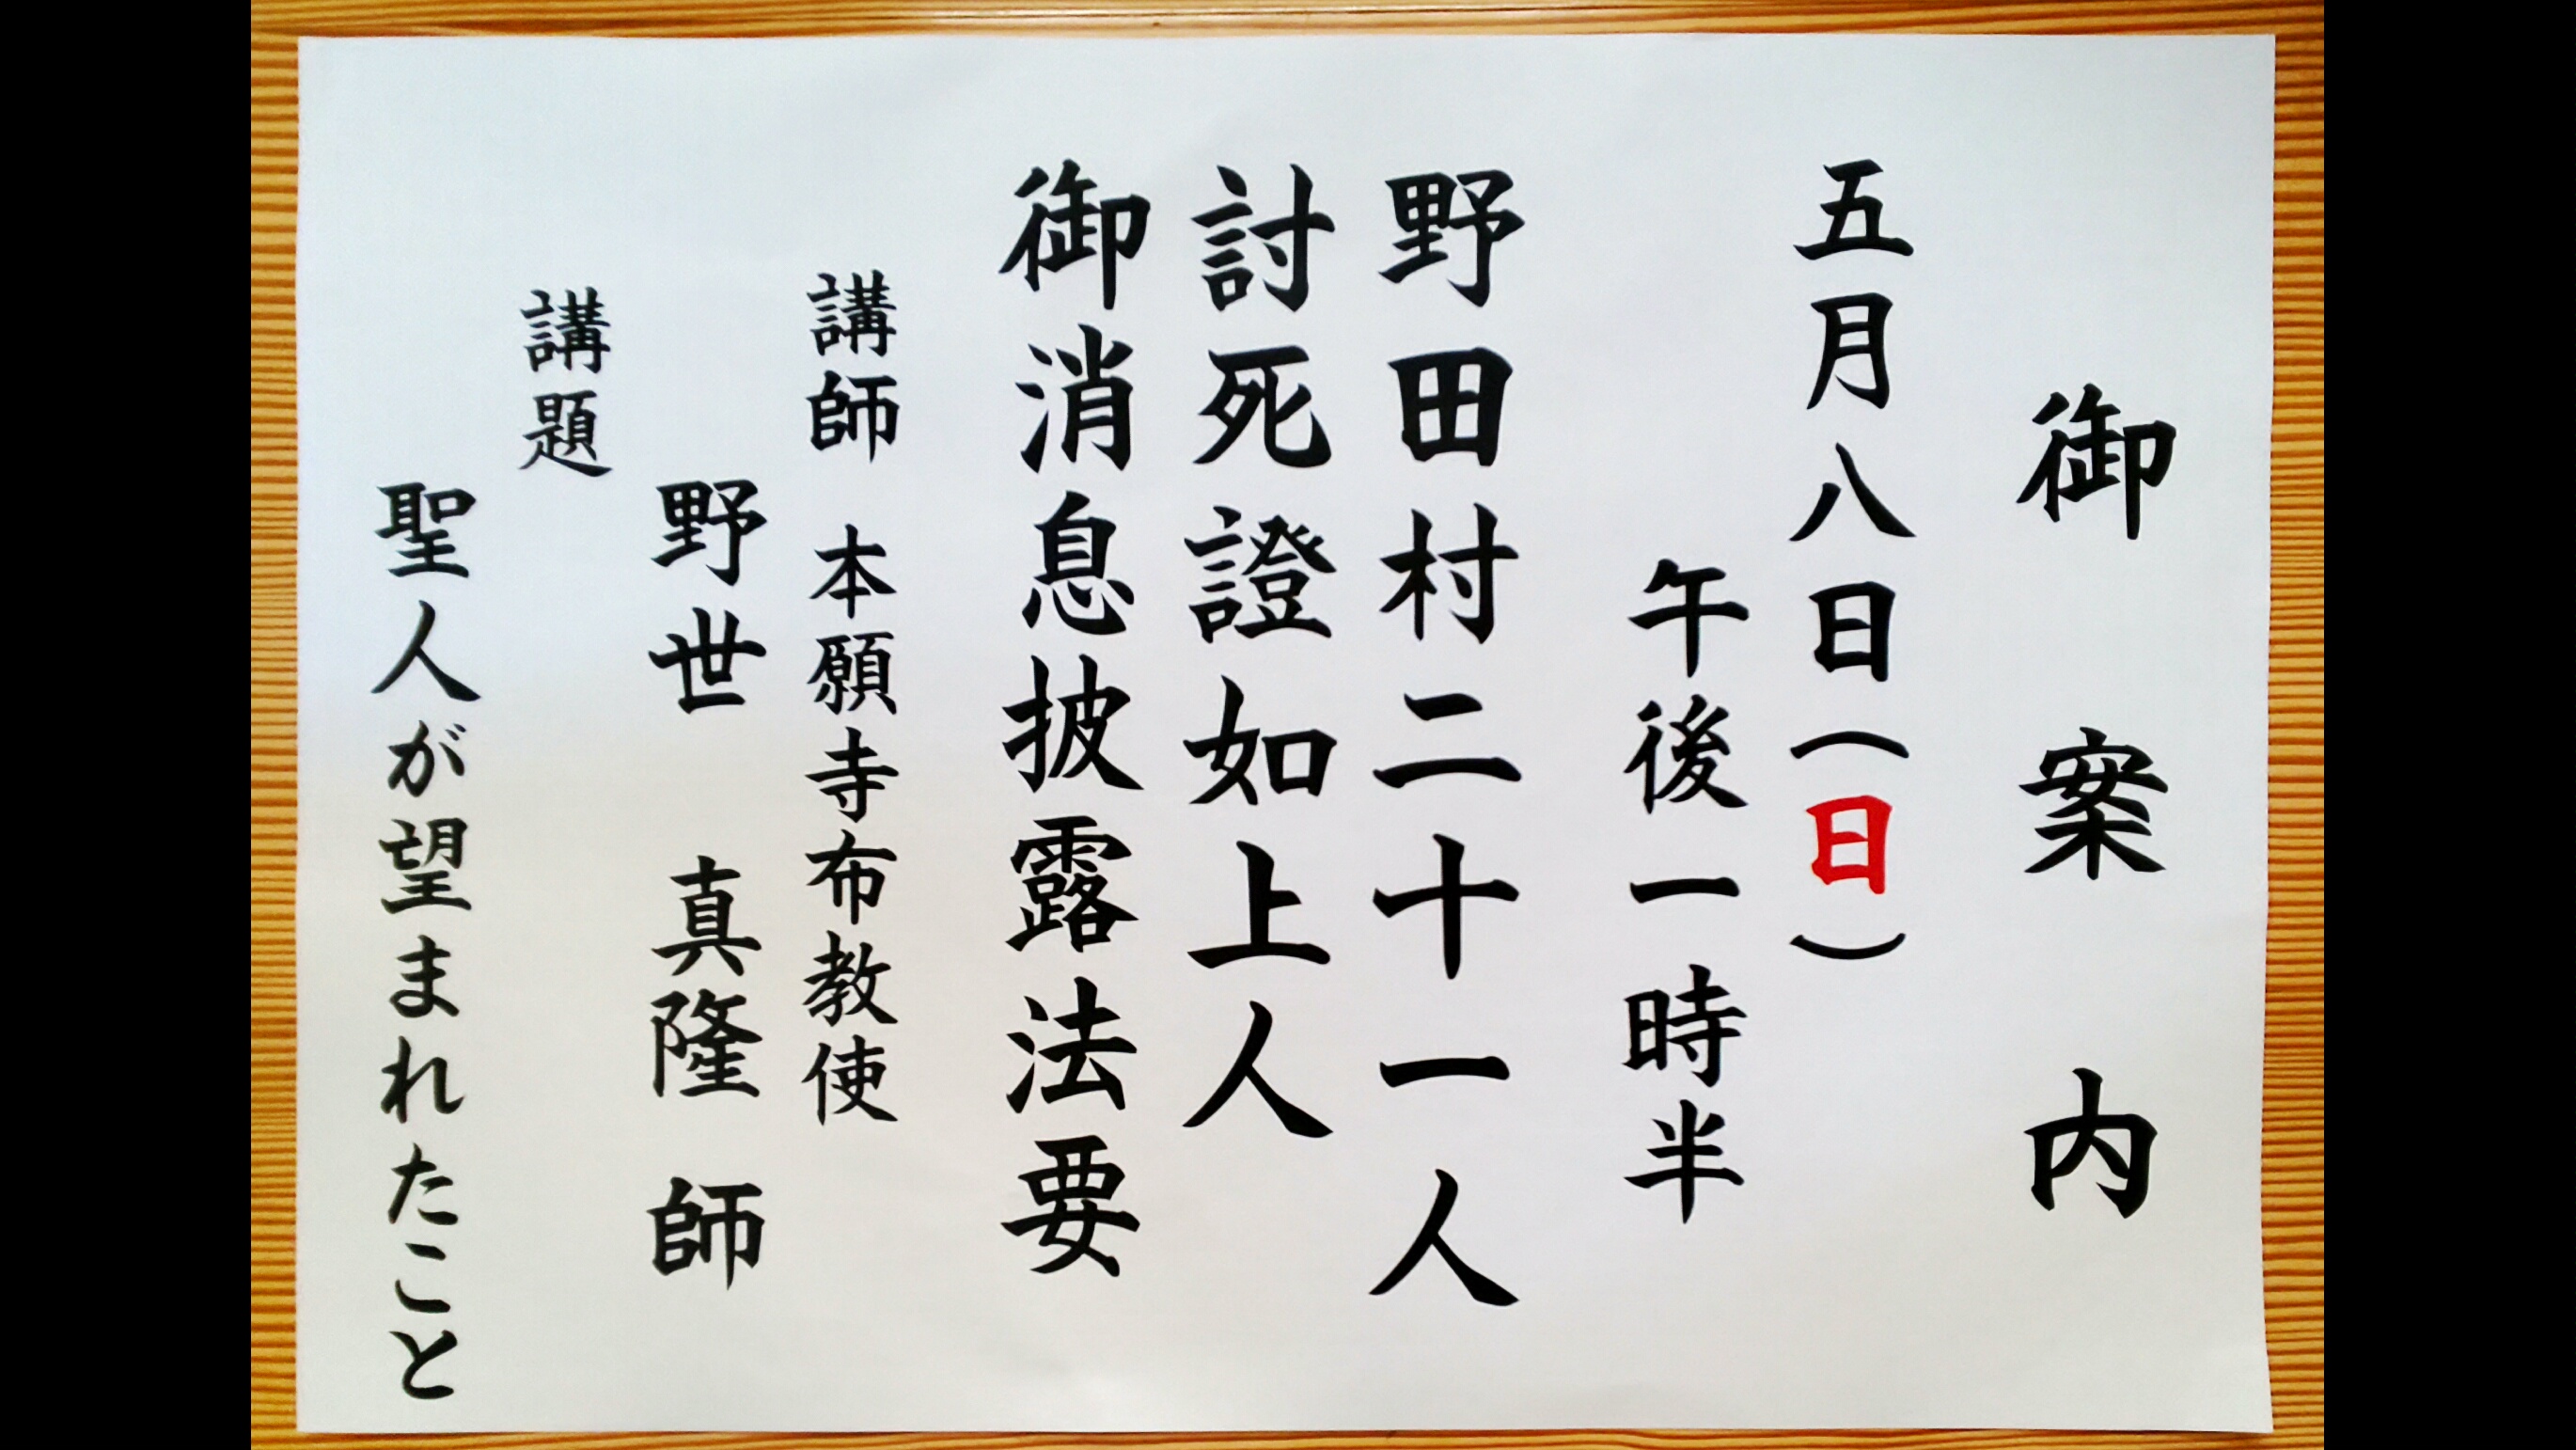 御案内
五月八日(日)
午後一時半
野田村二十一人
討死證如上人
御消息披露法要
講師 本願寺布教使
野世 真隆 師
講題
聖人が望まれたこと